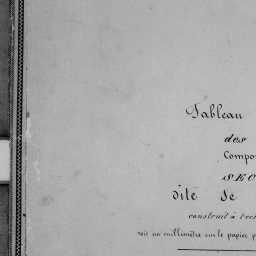 Tableau
des
Compo
SEC
dite de
construit à l'ech
soit un millimètre sur le papier p